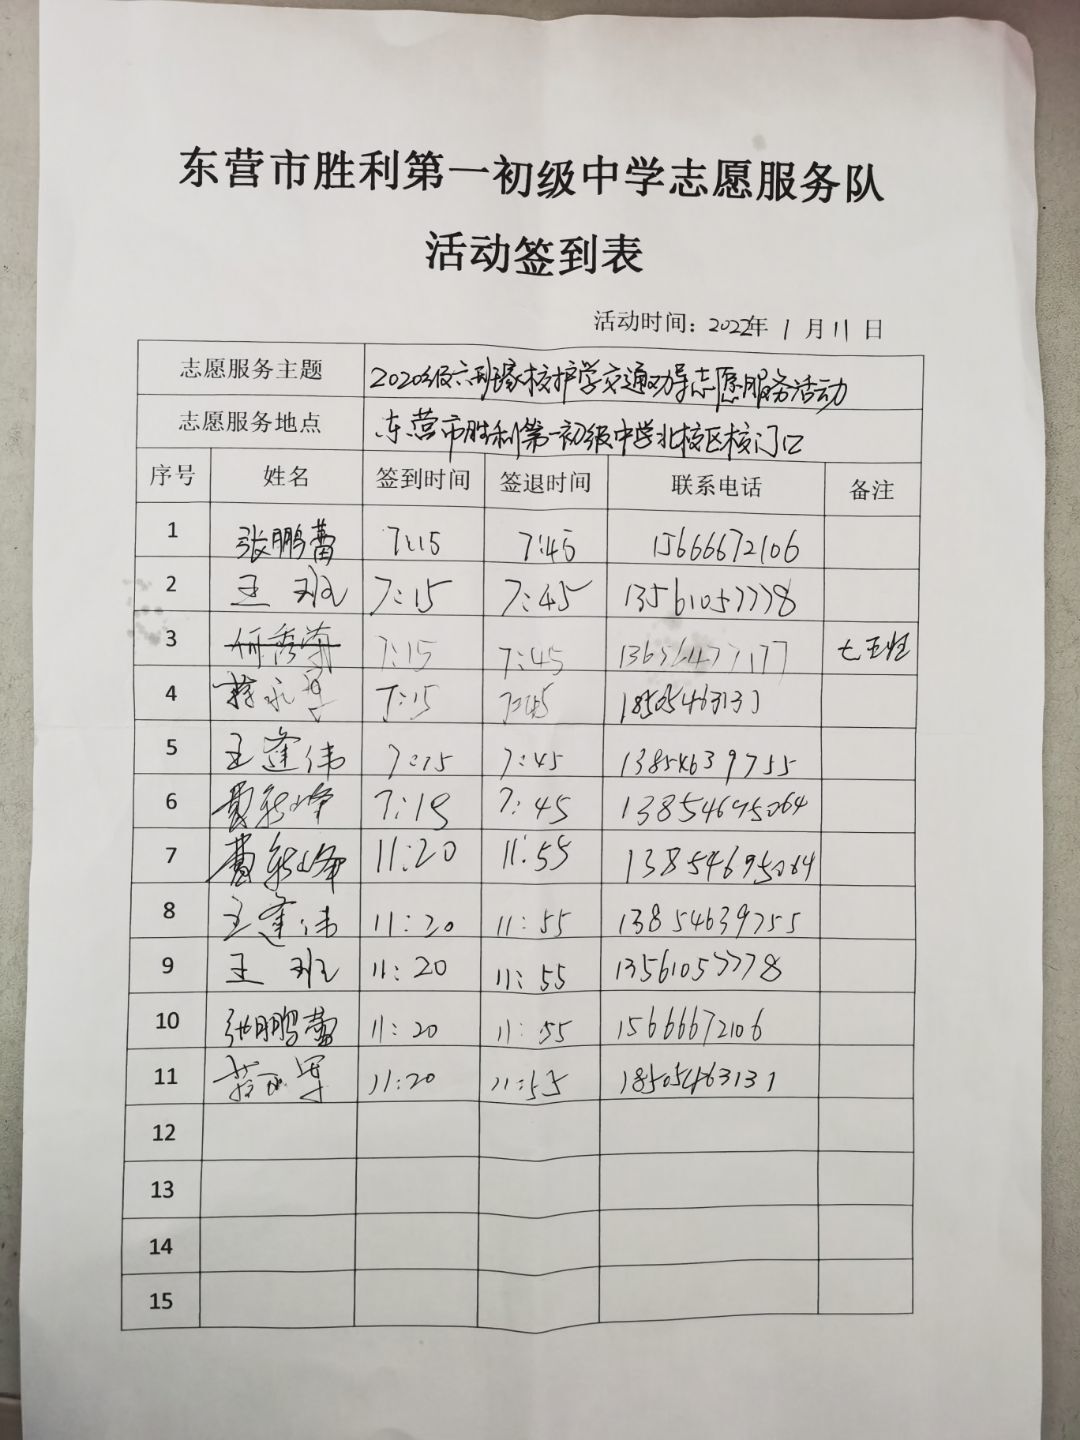 东营市胜利第一初级中学志愿服务队
活动签到表
活动时间：2022年 1 月 11 日
志愿服务主题 2020级六班家校护学交通劝导志愿服务活动
志愿服务地点 东营市胜利第一初级中学北校区校门口
序号 姓名 签到时间 签退时间 联系电话 备注
1 张鹏蕾 7:15 7:45 15666672106
2 王班 7:15 7:45 13561057778
3 7:15 7:45 七五班
4 7:15 7:45 18505463131
5 王蓬伟 7:15 7:45 13854639755
6 7:15 7:45 13854695064
7 11:20 11:55 13854695064
8 王蓬伟 11:20 11:55 13854639755
9 王班 11:20 11:55 13561057778
10 张鹏蕾 11:20 11:55 15666672106
11 11:20 11:55 18505463131
12
13
14
15